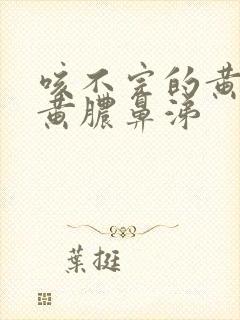 咳不完的黄
黄膿鼻涕
葉挺